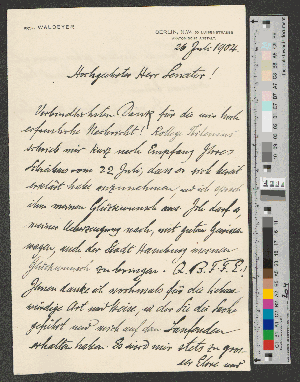 PROF. WALDEYER
BERLIN, N.W. LUTHERSTRASSE
26 Juli 1904.
Hochgeehrter Herr Senator!
Verbindlichsten Dank für die mir hoch
erfreuliche Nachricht! Kollege
schrieb mir kurz nach Empfang Ihres
Schreibens vom 22 Juli, dass er sich bereit
erklärt habe anzunehmen und ich sprach
ihm meinen Glückwunsch aus. Ich darf,
meiner Ueberzeugung nach, mit gutem Gewissen
wagen, auch der Stadt Hamburg meinen
Glückwunsch zu bringen. Q. B. F. F. F. S.!
Ihnen danke ich nochmals für die liebens-
würdige Art und Weise, in der Sie die Sache
geführt und mich auf dem Laufenden
erhalten haben. Es wird mir stets zu gros-
ser Ehre und